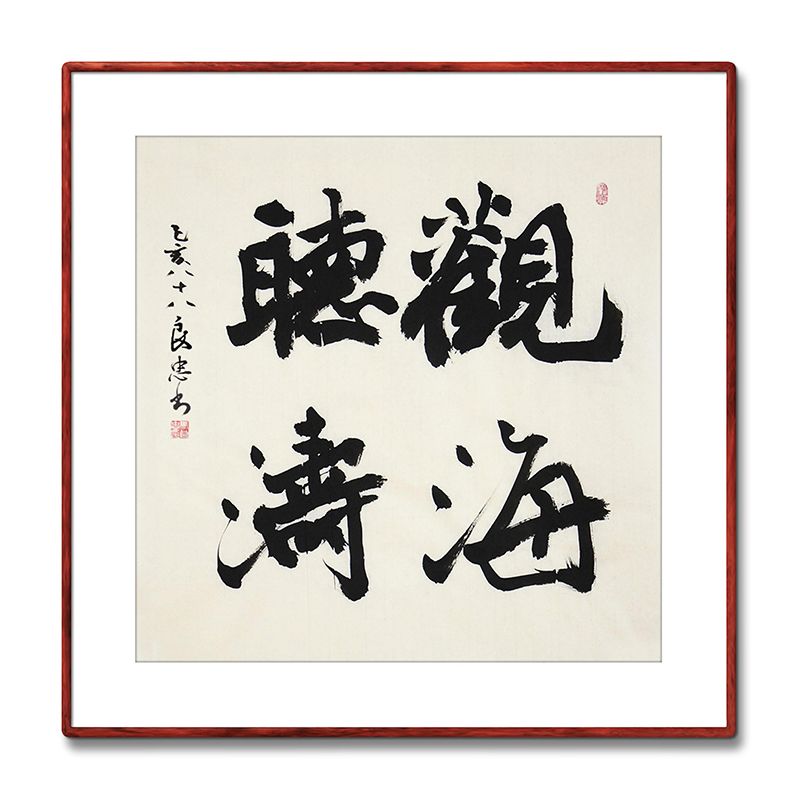 觀海
聽濤
乙亥八十八良忠书